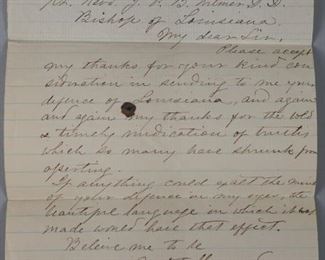 Rt. Revd. J. P. B. Wilmer D.D.
Bishop of Louisiana
My dear Sir,
Please accept
my thanks for your kind con
sideration in sending to me your
defence of Louisiana, and again
and again my thanks for the bold
& timely vindication of truths
which so many have shrunk from
asserting.
If anything could exalt the
of your defence in my eyes, the
beautiful language in which it was
made would have that effect.
Believe me to be